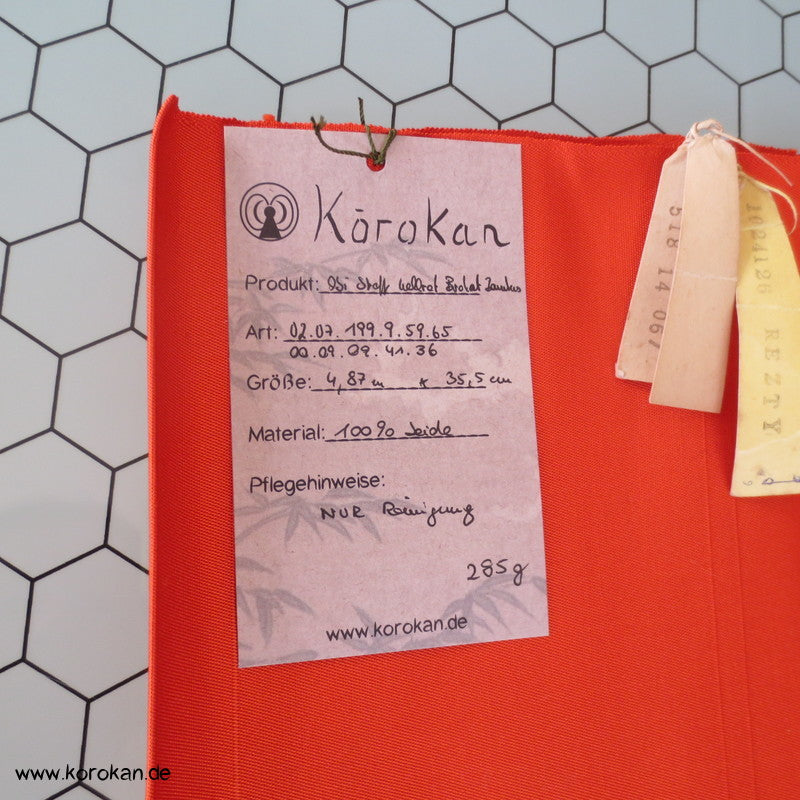 Kōrokan
Produkt: Obi Stoff hellrot Brokat
Art: 02.07.199.9.59.65
00.09.09.41.36
Größe: 4,87 m x 35,5 cm
Material: 100% Seide
Pflegehinweise:
NUR Reinigung
285g
www.korokan.de
518 14 067
1024126 REZTY
www.korokan.de